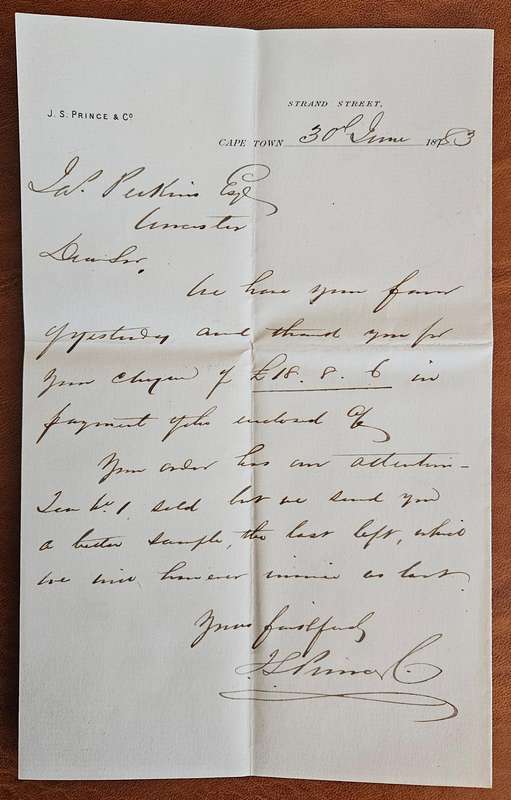 J. S. PRINCE & Co
STRAND STREET,
CAPE TOWN 30th June 1883
Jas. Perkins Esqr
Worcester
Dear Sir,
We have your favor
of yesterday and thank you for
your cheque of £18.8.6 in
payment of the enclosed a/c
Your order has our attention—
Tea No. 1 sold but we send you
a better sample, the last left, which
we will however invoice as last.
Yours faithfully
J S Prince & Co